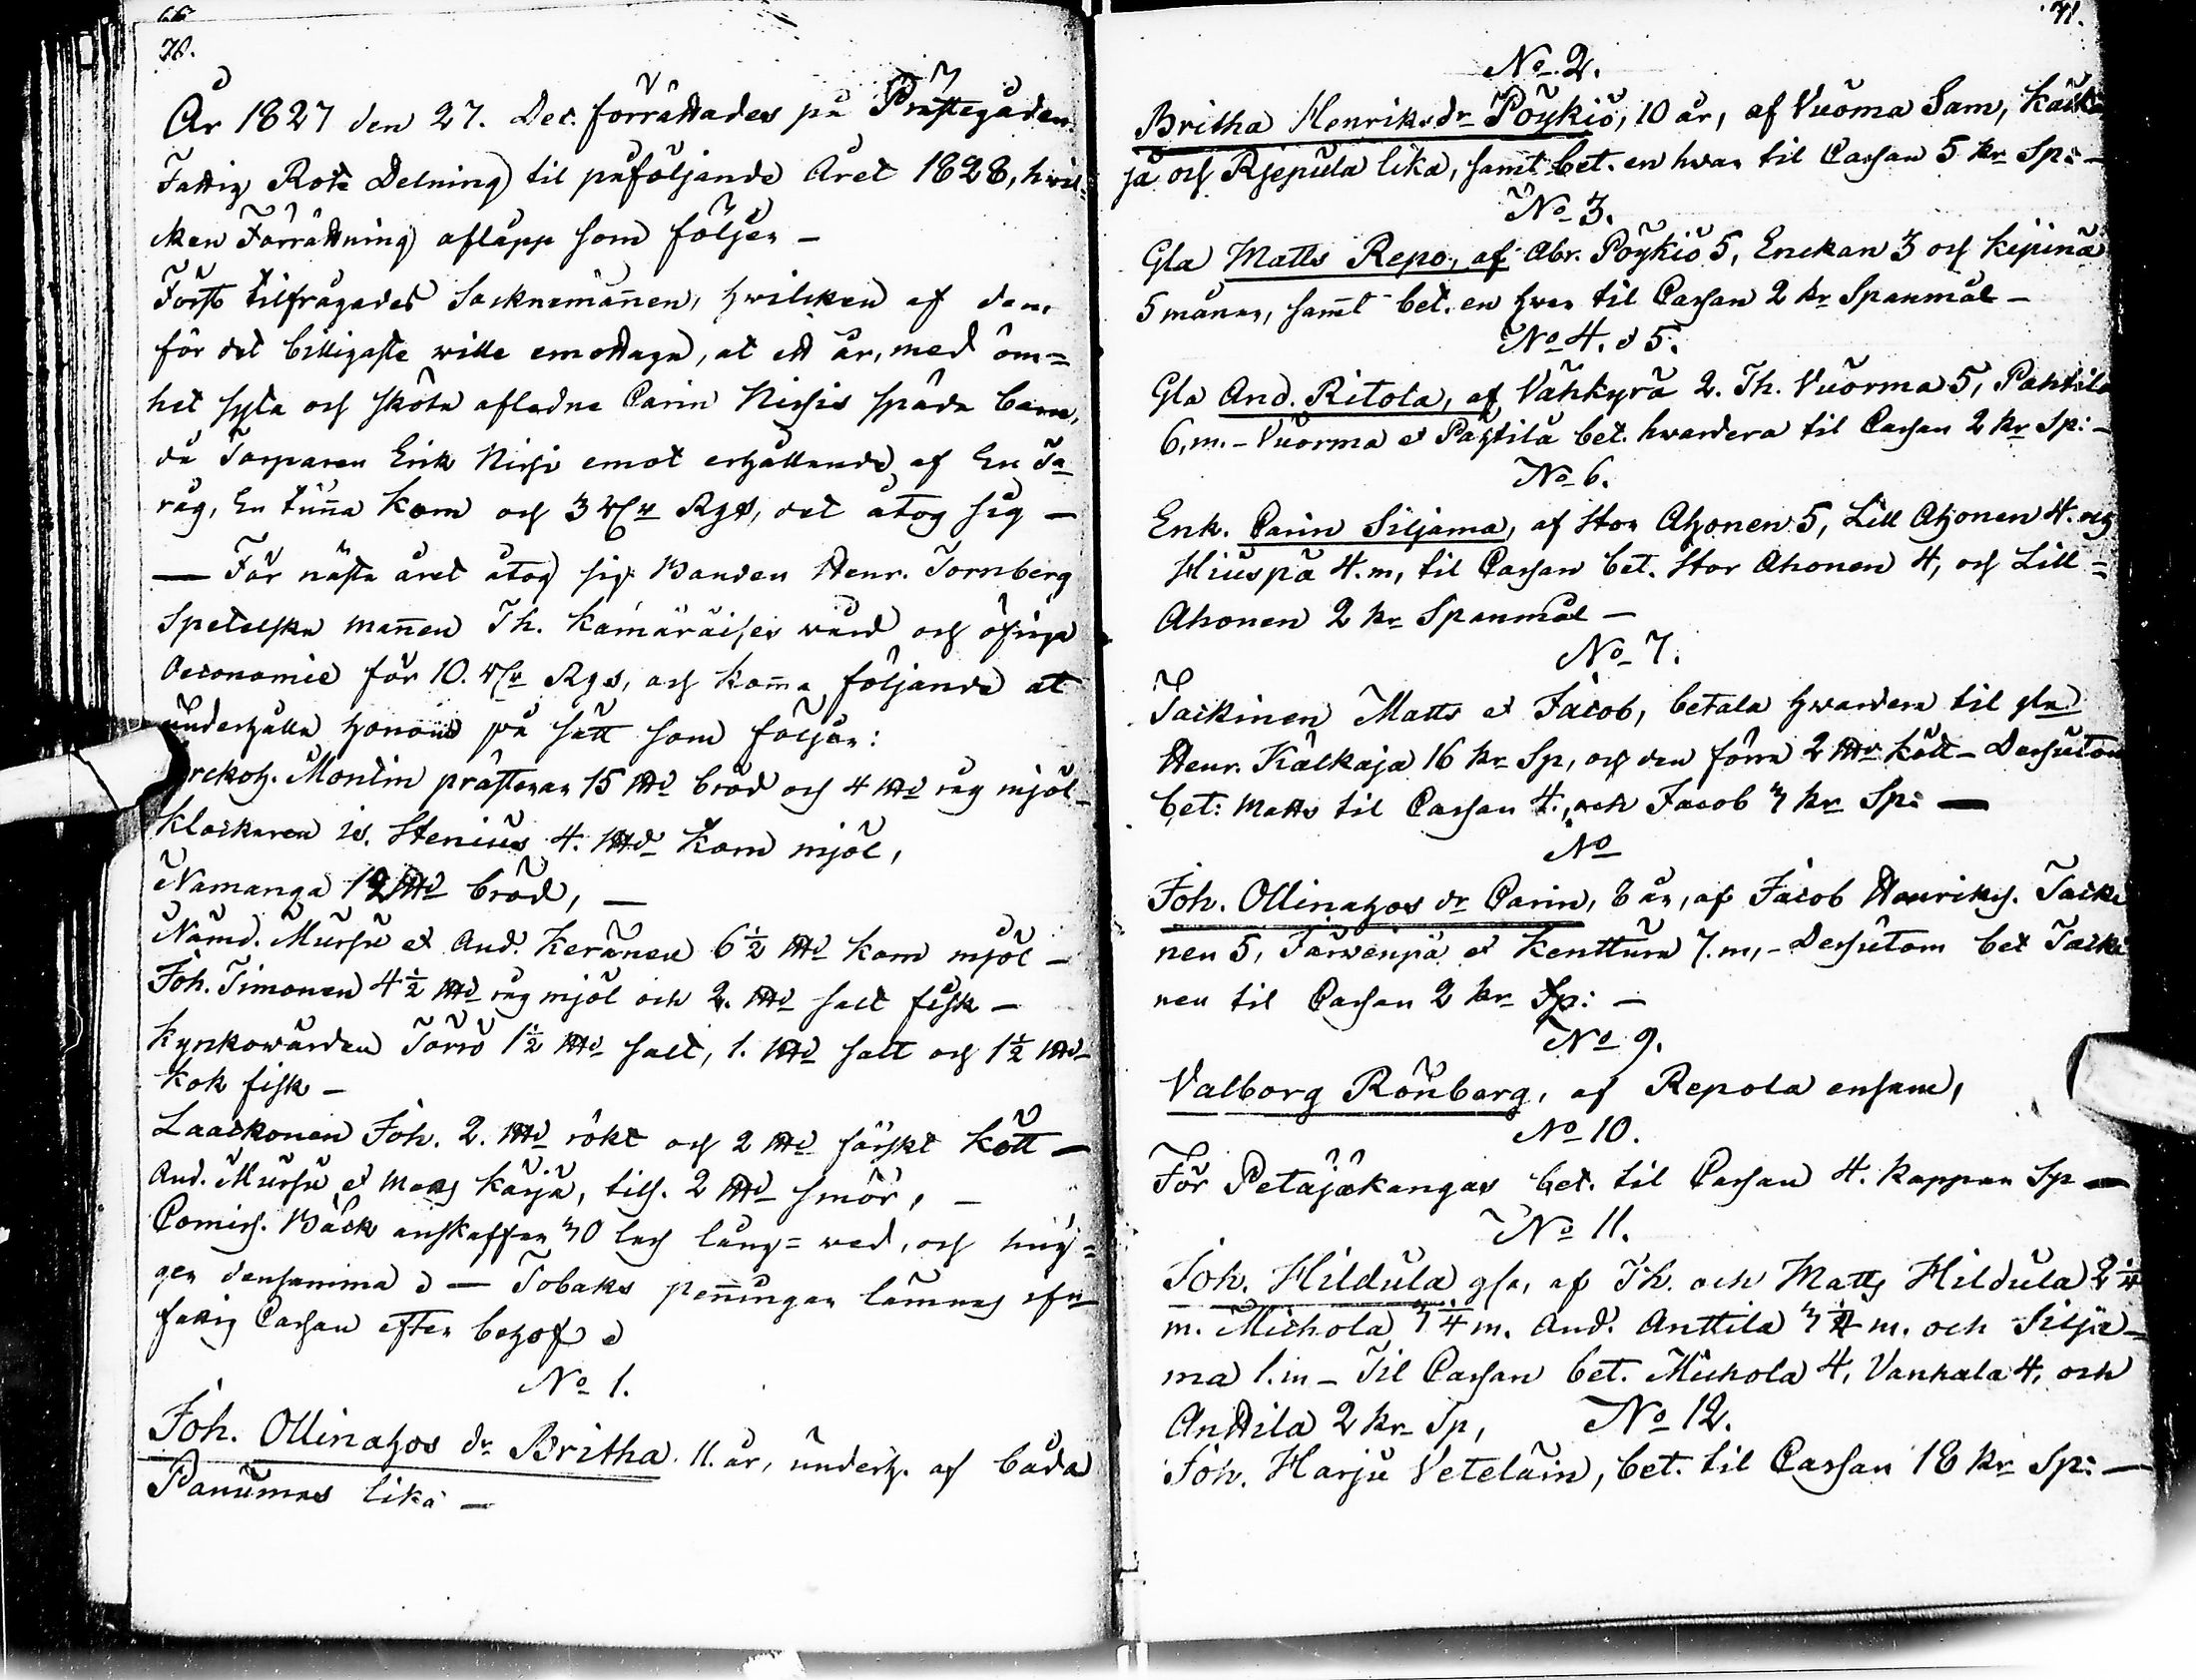 70.
År 1827 den 27. Dec. förrättades på Prästegården
Fattig Rote Delning til påföljande Året 1828, hvil-
cken Förrättning aflupp som följer —
Först tilfrågades Socknemännen, hvilcken af dem
för det billigaste wille emottaga, at ett år, med öm=
het syta och sköta aflednе Carin Nissis späda barn,
då Torparen Erik Nissi emot erhållande af En Ta
råg, En tunna Korn och 3 Rgs, det åtog sig —
— För nästa året åtog sig Banden Henr. Tornberg
Spetelska mannen Th. Kämäräises wård och öfriga
Oeconomie för 10. Rgs, och komma följande at
underhålla honom på sätt som följer:
Montin presterar 15 bröd och 4 råg mjöl-
Klockaren is. Stenius 4. Korn mjöl,
Namanga 12 bröd, —
Nämd. Mursu et And. Keränen 6 ½ korn mjöl —
Joh. Timonen 4 ½ råg mjöl och 2. salt fisk —
Kynkowärden Törrö 1 ½ salt, 1. salt och 1 ½
kok fisk —
Laackonen Joh. 2. rökt och 2 färskt kött —
And. Mursu et Karja, tils. 2 smör, —
Comiss. Bäck anskaffar 30 lass lång= wed, och hug=
ger densamma — Tobaks penningar lämnas
fattig Cassan efter behof
No 1.
Joh. Ollinahos dr Britha 11. år, underh. af båda
Panumas lika —
71.
No 2.
Britha Henriks dr Pöykiö, 10 år, af Vuoma Sam,
ja och Rjepula lika, samt bet. en hwar til Cassan 5 kr Sp: —
No 3.
Gla Matts Repo, af Abr. Pöykiö 5, Enckan 3 och Kipinä
5 månar, samt bet. en hwar til Cassan 2 kr Spanmål —
No 4. o 5.
Gla And. Ritola, af Vähkyrä 2. Th. Vuorma 5, Pahtila
6, m. – Vuorma et Pahtila bet. hwardera til Cassan 2 kr Sp: —
No 6.
Enk. Carin Siljama, af Stor Ahonen 5, Lill Ahonen 4. och
Hiuspä 4. m, til Cassan bet. Stor Ahonen 4, och Lill =
Ahonen 2 kr Spanmål —
No 7.
Tackinen Matts et Jacob, betala hwardera til gla
Henr. Kälkäjä 16 kr Sp, och den förra 2 kött – Dessutom
bet: Matts til Cassan 4., och Jacob 3 kr Sp: —
No
Joh. Ollinahos dr Carin, 8 år, af Jacob Henrikss. Tacki
nen 5, Järwenpä et Kenttum 7. m, – Dessutom bet Tacki
nen til Cassan 2 kr Sp: —
No 9.
Valborg Rönberg, af Repola ensam,
No 10.
För Petäjäkangas bet. til Cassan 4. Kappar Sp —
No 11.
Joh. Hildula gla, af Th. och Matts Hildula 2 ¼
m. Michola 3 ¼ m. And. Anttila 3 ¼ m. och Siljä-
ma 1. m – Til Cassan bet. Michola 4, Vanhala 4, och
Anttila 2 kr Sp, No 12.
Joh. Harju Veteläin, bet. til Cassan 18 kr Sp: —